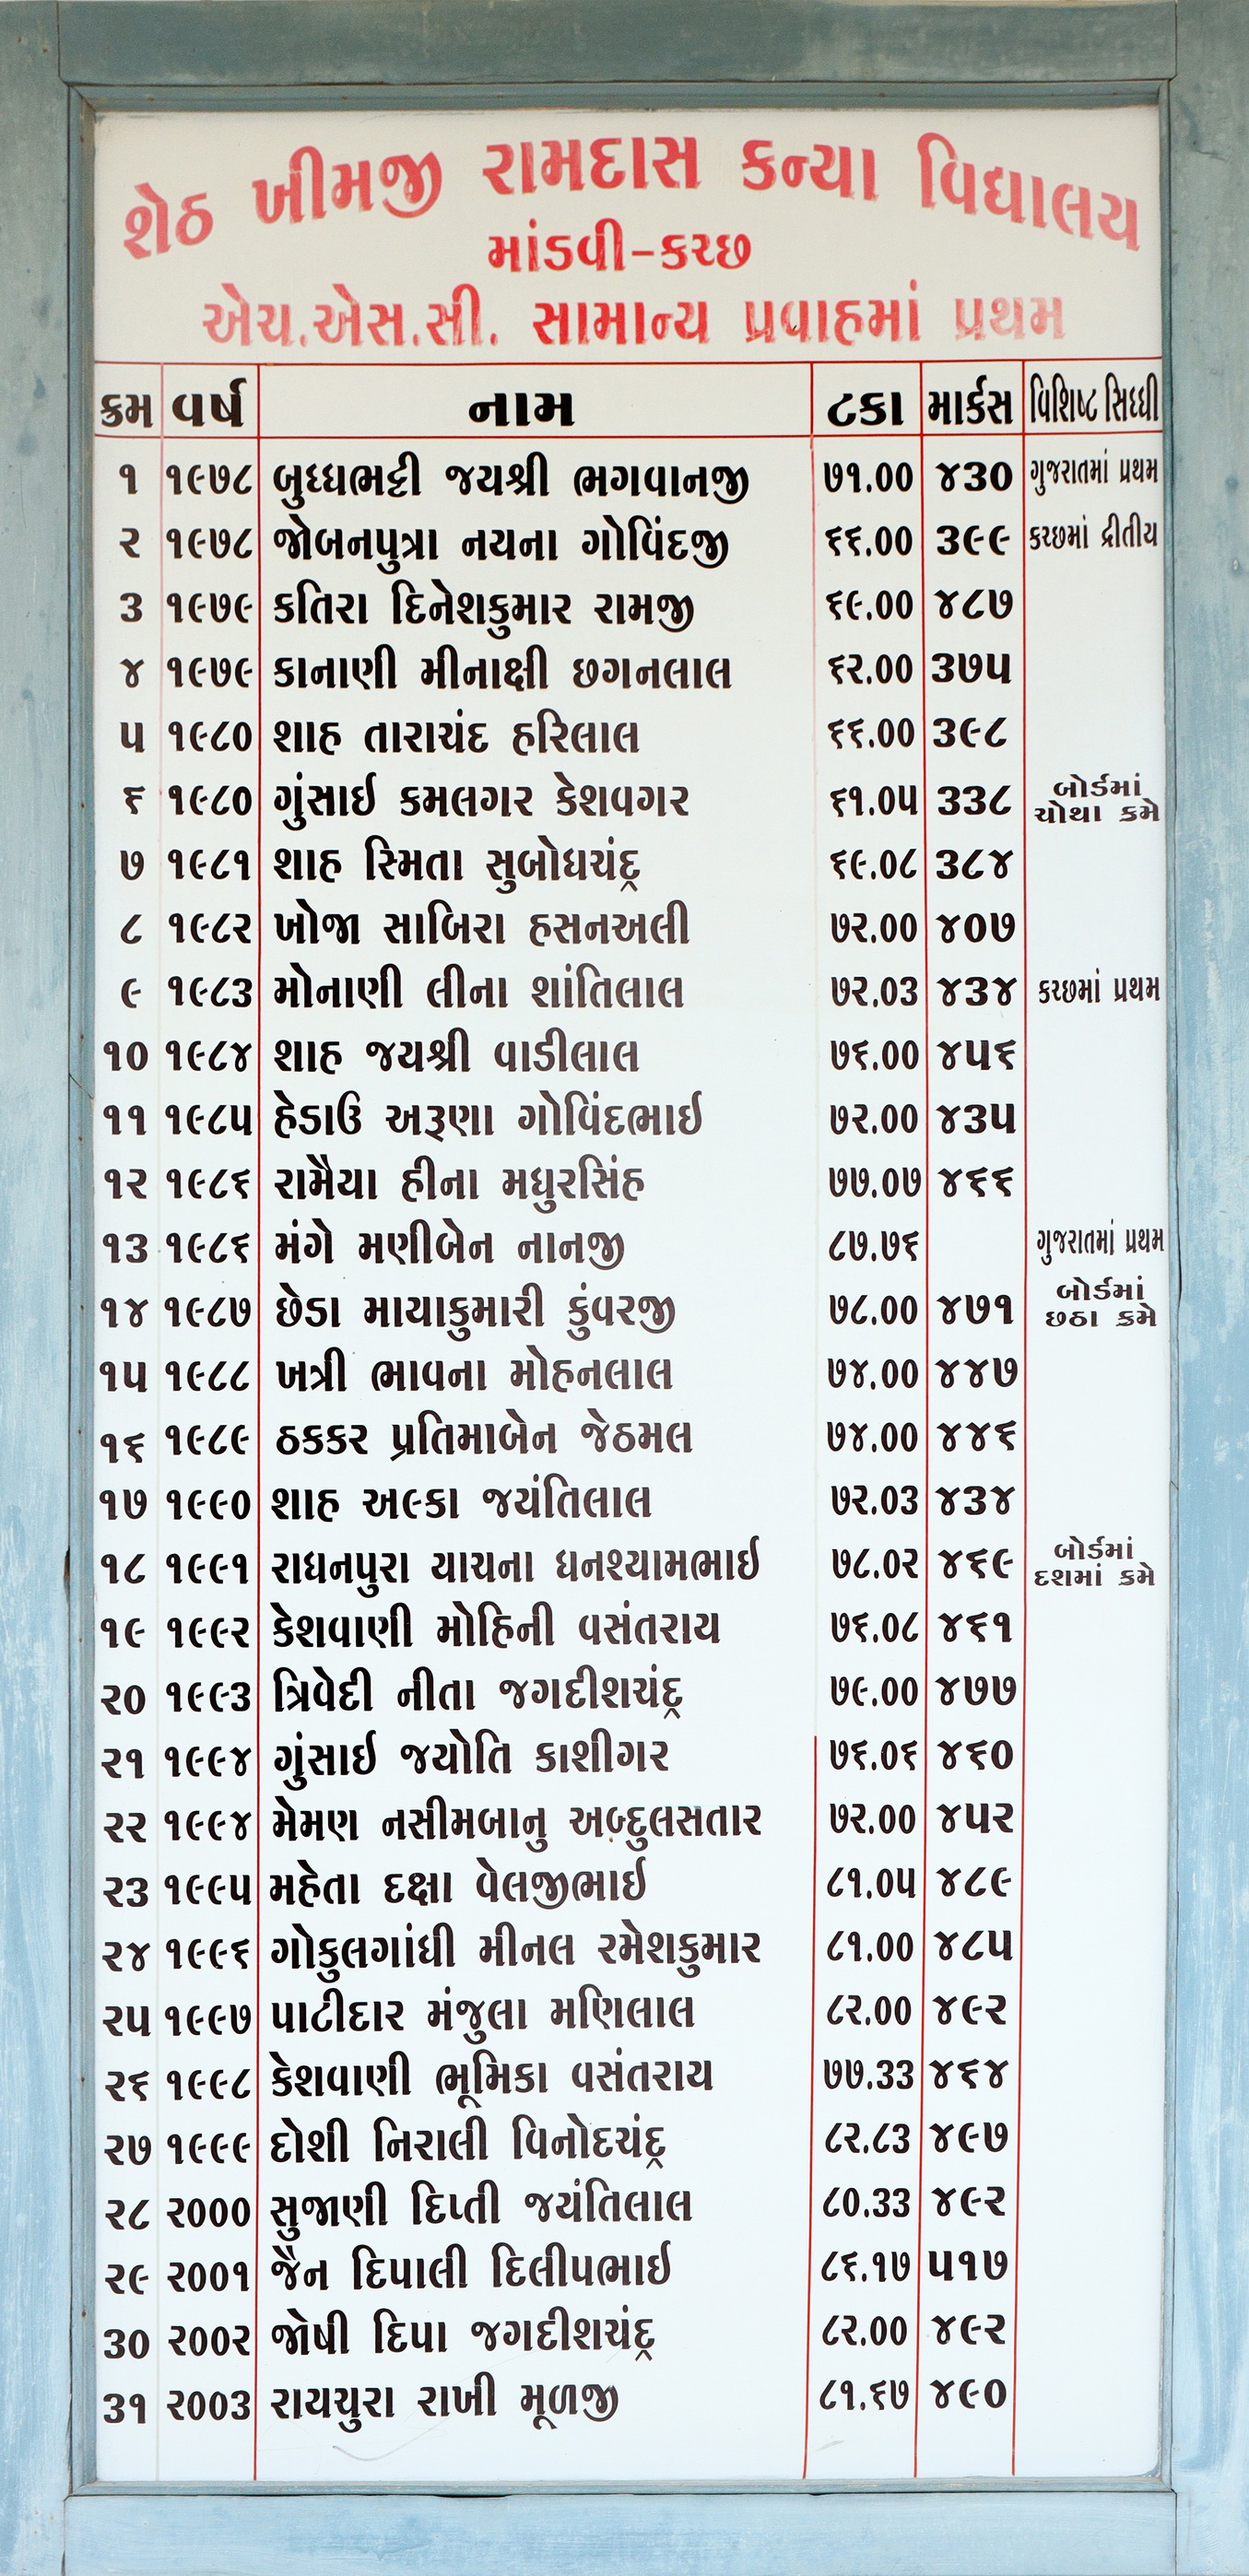 શેઠ ખીમજી રામદાસ કન્યા વિદ્યાલય
માંડવી-કચ્છ
એચ.એસ.સી. સામાન્ય પ્રવાહમાં પ્રથમ
ક્રમ વર્ષ નામ ટકા માર્કસ વિશિષ્ટ સિધ્ધી
૧ ૧૯૭૮ બુધ્ધભટ્ટી જયશ્રી ભગવાનજી ૭૧.૦૦ ૪૩૦ ગુજરાતમાં પ્રથમ
૨ ૧૯૭૮ જોબનપુત્રા નયના ગોવિંદજી ૬૬.૦૦ ૩૯૯ કચ્છમાં દ્રીતીય
૩ ૧૯૭૯ કતિરા દિનેશકુમાર રામજી ૬૯.૦૦ ૪૮૭
૪ ૧૯૭૯ કાનાણી મીનાક્ષી છગનલાલ ૬૨.૦૦ ૩૭૫
૫ ૧૯૮૦ શાહ તારાચંદ હરિલાલ ૬૬.૦૦ ૩૯૮
૬ ૧૯૮૦ ગુંસાઈ કમલગર કેશવગર ૬૧.૦૫ ૩૩૮ બોર્ડમાં ચોથા ક્રમે
૭ ૧૯૮૧ શાહ સ્મિતા સુબોધચંદ્ર ૬૯.૦૮ ૩૮૪
૮ ૧૯૮૨ ખોજા સાબિરા હસનઅલી ૭૨.૦૦ ૪૦૭
૯ ૧૯૮૩ મોનાણી લીના શાંતિલાલ ૭૨.૦૩ ૪૩૪ કચ્છમાં પ્રથમ
૧૦ ૧૯૮૪ શાહ જયશ્રી વાડીલાલ ૭૬.૦૦ ૪૫૬
૧૧ ૧૯૮૫ હેડાઉ અરૂણા ગોવિંદભાઈ ૭૨.૦૦ ૪૩૫
૧૨ ૧૯૮૬ રામૈયા હીના મધુરસિંહ ૭૭.૦૭ ૪૬૬
૧૩ ૧૯૮૬ મંગે મણીબેન નાનજી ૮૭.૭૬ ગુજરાતમાં પ્રથમ
૧૪ ૧૯૮૭ છેડા માયાકુમારી કુંવરજી ૭૮.૦૦ ૪૭૧ બોર્ડમાં છઠા ક્રમે
૧૫ ૧૯૮૮ ખત્રી ભાવના મોહનલાલ ૭૪.૦૦ ૪૪૭
૧૬ ૧૯૮૯ ઠકકર પ્રતિમાબેન જેઠમલ ૭૪.૦૦ ૪૪૬
૧૭ ૧૯૯૦ શાહ અલ્કા જયંતિલાલ ૭૨.૦૩ ૪૩૪
૧૮ ૧૯૯૧ રાધનપુરા યાચના ધનશ્યામભાઈ ૭૮.૦૨ ૪૬૯ બોર્ડમાં દશમાં ક્રમે
૧૯ ૧૯૯૨ કેશવાણી મોહિની વસંતરાય ૭૬.૦૮ ૪૬૧
૨૦ ૧૯૯૩ ત્રિવેદી નીતા જગદીશચંદ્ર ૭૯.૦૦ ૪૭૭
૨૧ ૧૯૯૪ ગુંસાઈ જયોતિ કાશીગર ૭૬.૦૬ ૪૬૦
૨૨ ૧૯૯૪ મેમણ નસીમબાનુ અબ્દુલસતાર ૭૨.૦૦ ૪૫૨
૨૩ ૧૯૯૫ મહેતા દક્ષા વેલજીભાઈ ૮૧.૦૫ ૪૮૯
૨૪ ૧૯૯૬ ગોકુલગાંધી મીનલ રમેશકુમાર ૮૧.૦૦ ૪૮૫
૨૫ ૧૯૯૭ પાટીદાર મંજુલા મણિલાલ ૮૨.૦૦ ૪૯૨
૨૬ ૧૯૯૮ કેશવાણી ભૂમિકા વસંતરાય ૭૭.૩૩ ૪૬૪
૨૭ ૧૯૯૯ દોશી નિરાલી વિનોદચંદ્ર ૮૨.૮૩ ૪૯૭
૨૮ ૨૦૦૦ સુજાણી દિપ્તી જયંતિલાલ ૮૦.૩૩ ૪૯૨
૨૯ ૨૦૦૧ જૈન દિપાલી દિલીપભાઈ ૮૬.૧૭ ૫૧૭
૩૦ ૨૦૦૨ જોષી દિપા જગદીશચંદ્ર ૮૨.૦૦ ૪૯૨
૩૧ ૨૦૦૩ રાયચુરા રાખી મૂળજી ૮૧.૬૭ ૪૯૦